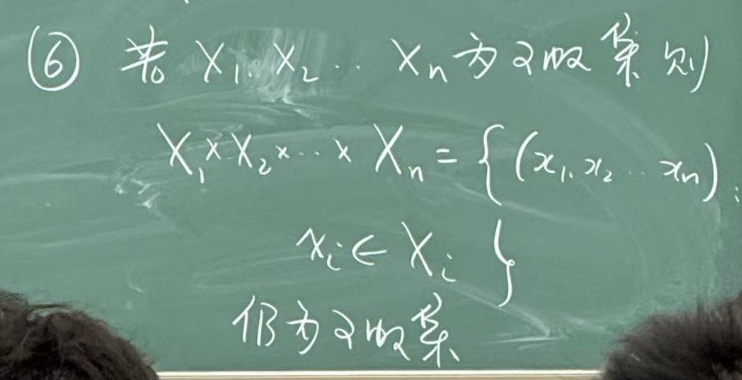 ⑥ 若 X₁, X₂ ‥ Xₙ 为可收集 则
X₁×X₂×‥×Xₙ = {(x₁, x₂ ‥ xₙ) :
xᵢ ∈ Xᵢ }
仍为可收集